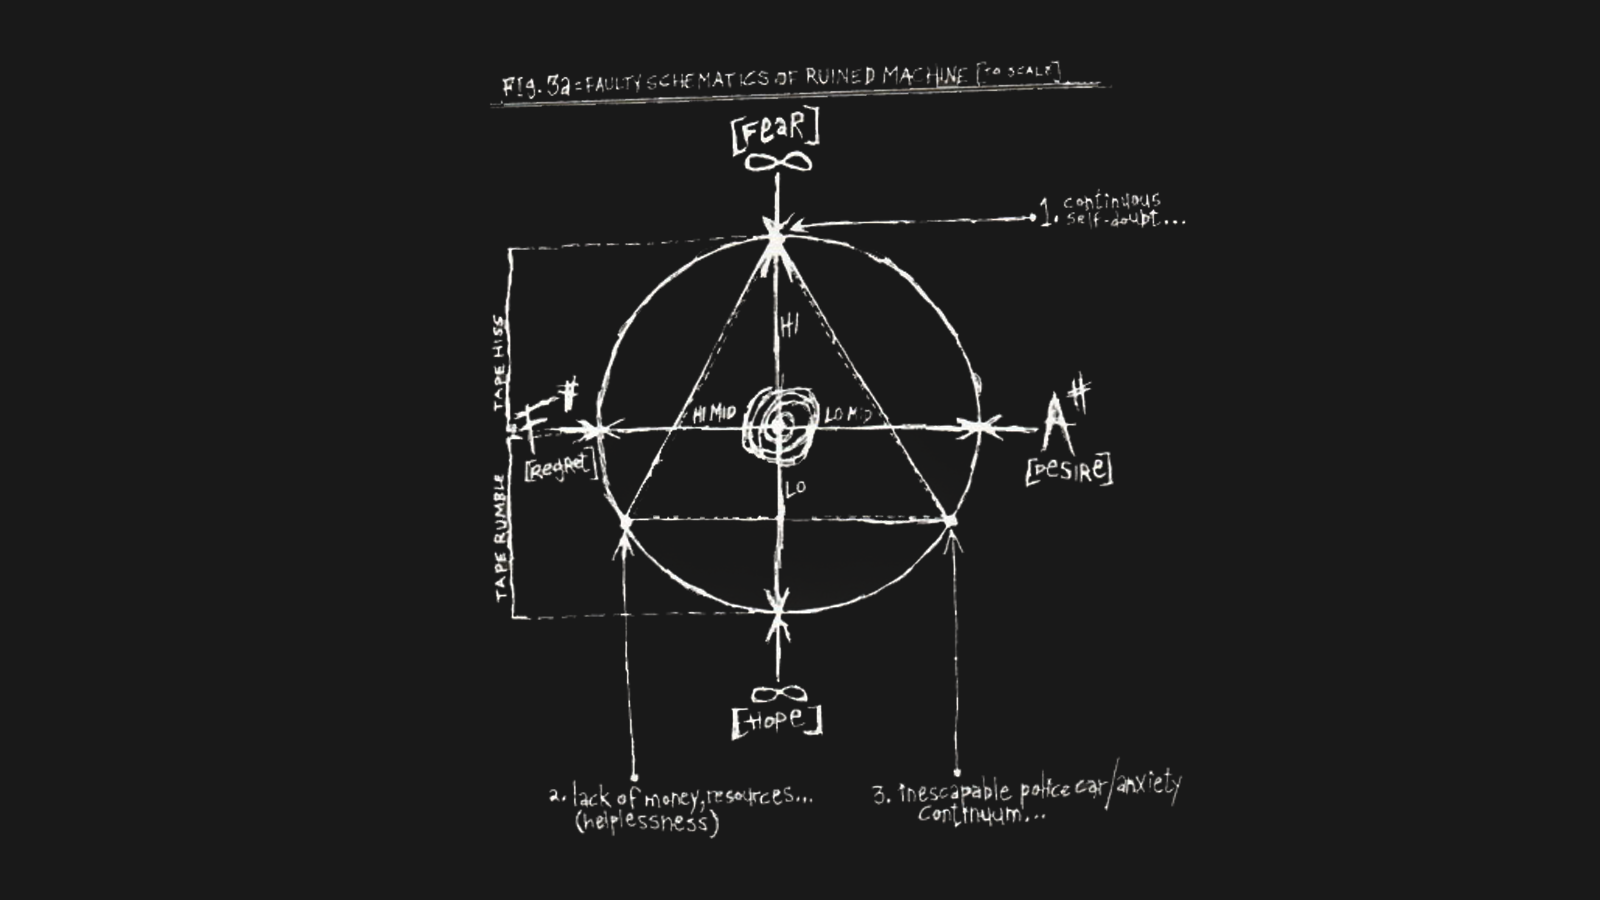 Fig. 3a = FAULTY SCHEMATICS OF RUINED MACHINE [TO SCALE]
[FeaR]
∞
1. continuous
self-doubt...
TAPE HISS
HI
F#
HI MID
LO MID
A#
[RegRet]
[DESIRe]
TAPE RUMBLE
LO
∞
[Hope]
2. lack of money, resources...
(helplessness)
3. inescapable police car/anxiety
continuum...